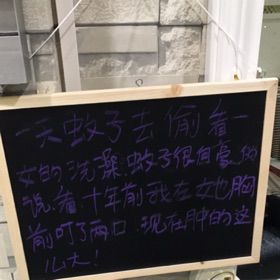 一天蚊子去偷看一
女的洗澡.蚊子很自豪的
说着十年前我在她胸
前叮了两口.现在肿的这
么大!